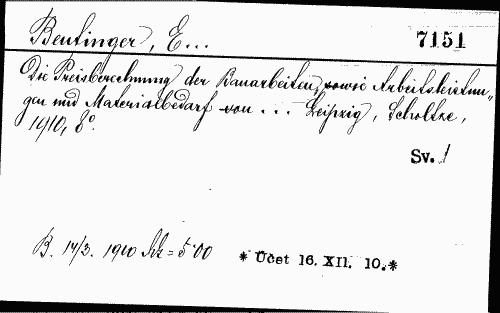 Beutinger, E...
7151
Die Preisberechnung der Bauarbeiten, sowie Arbeitsleistun„
gen und Materialbedarf von ... Leipzig, Scholtze,
1910, 8°.
Sv. 1
B. 14/3. 1910 Mk = 5·00
* Účet 16. XII. 10.*